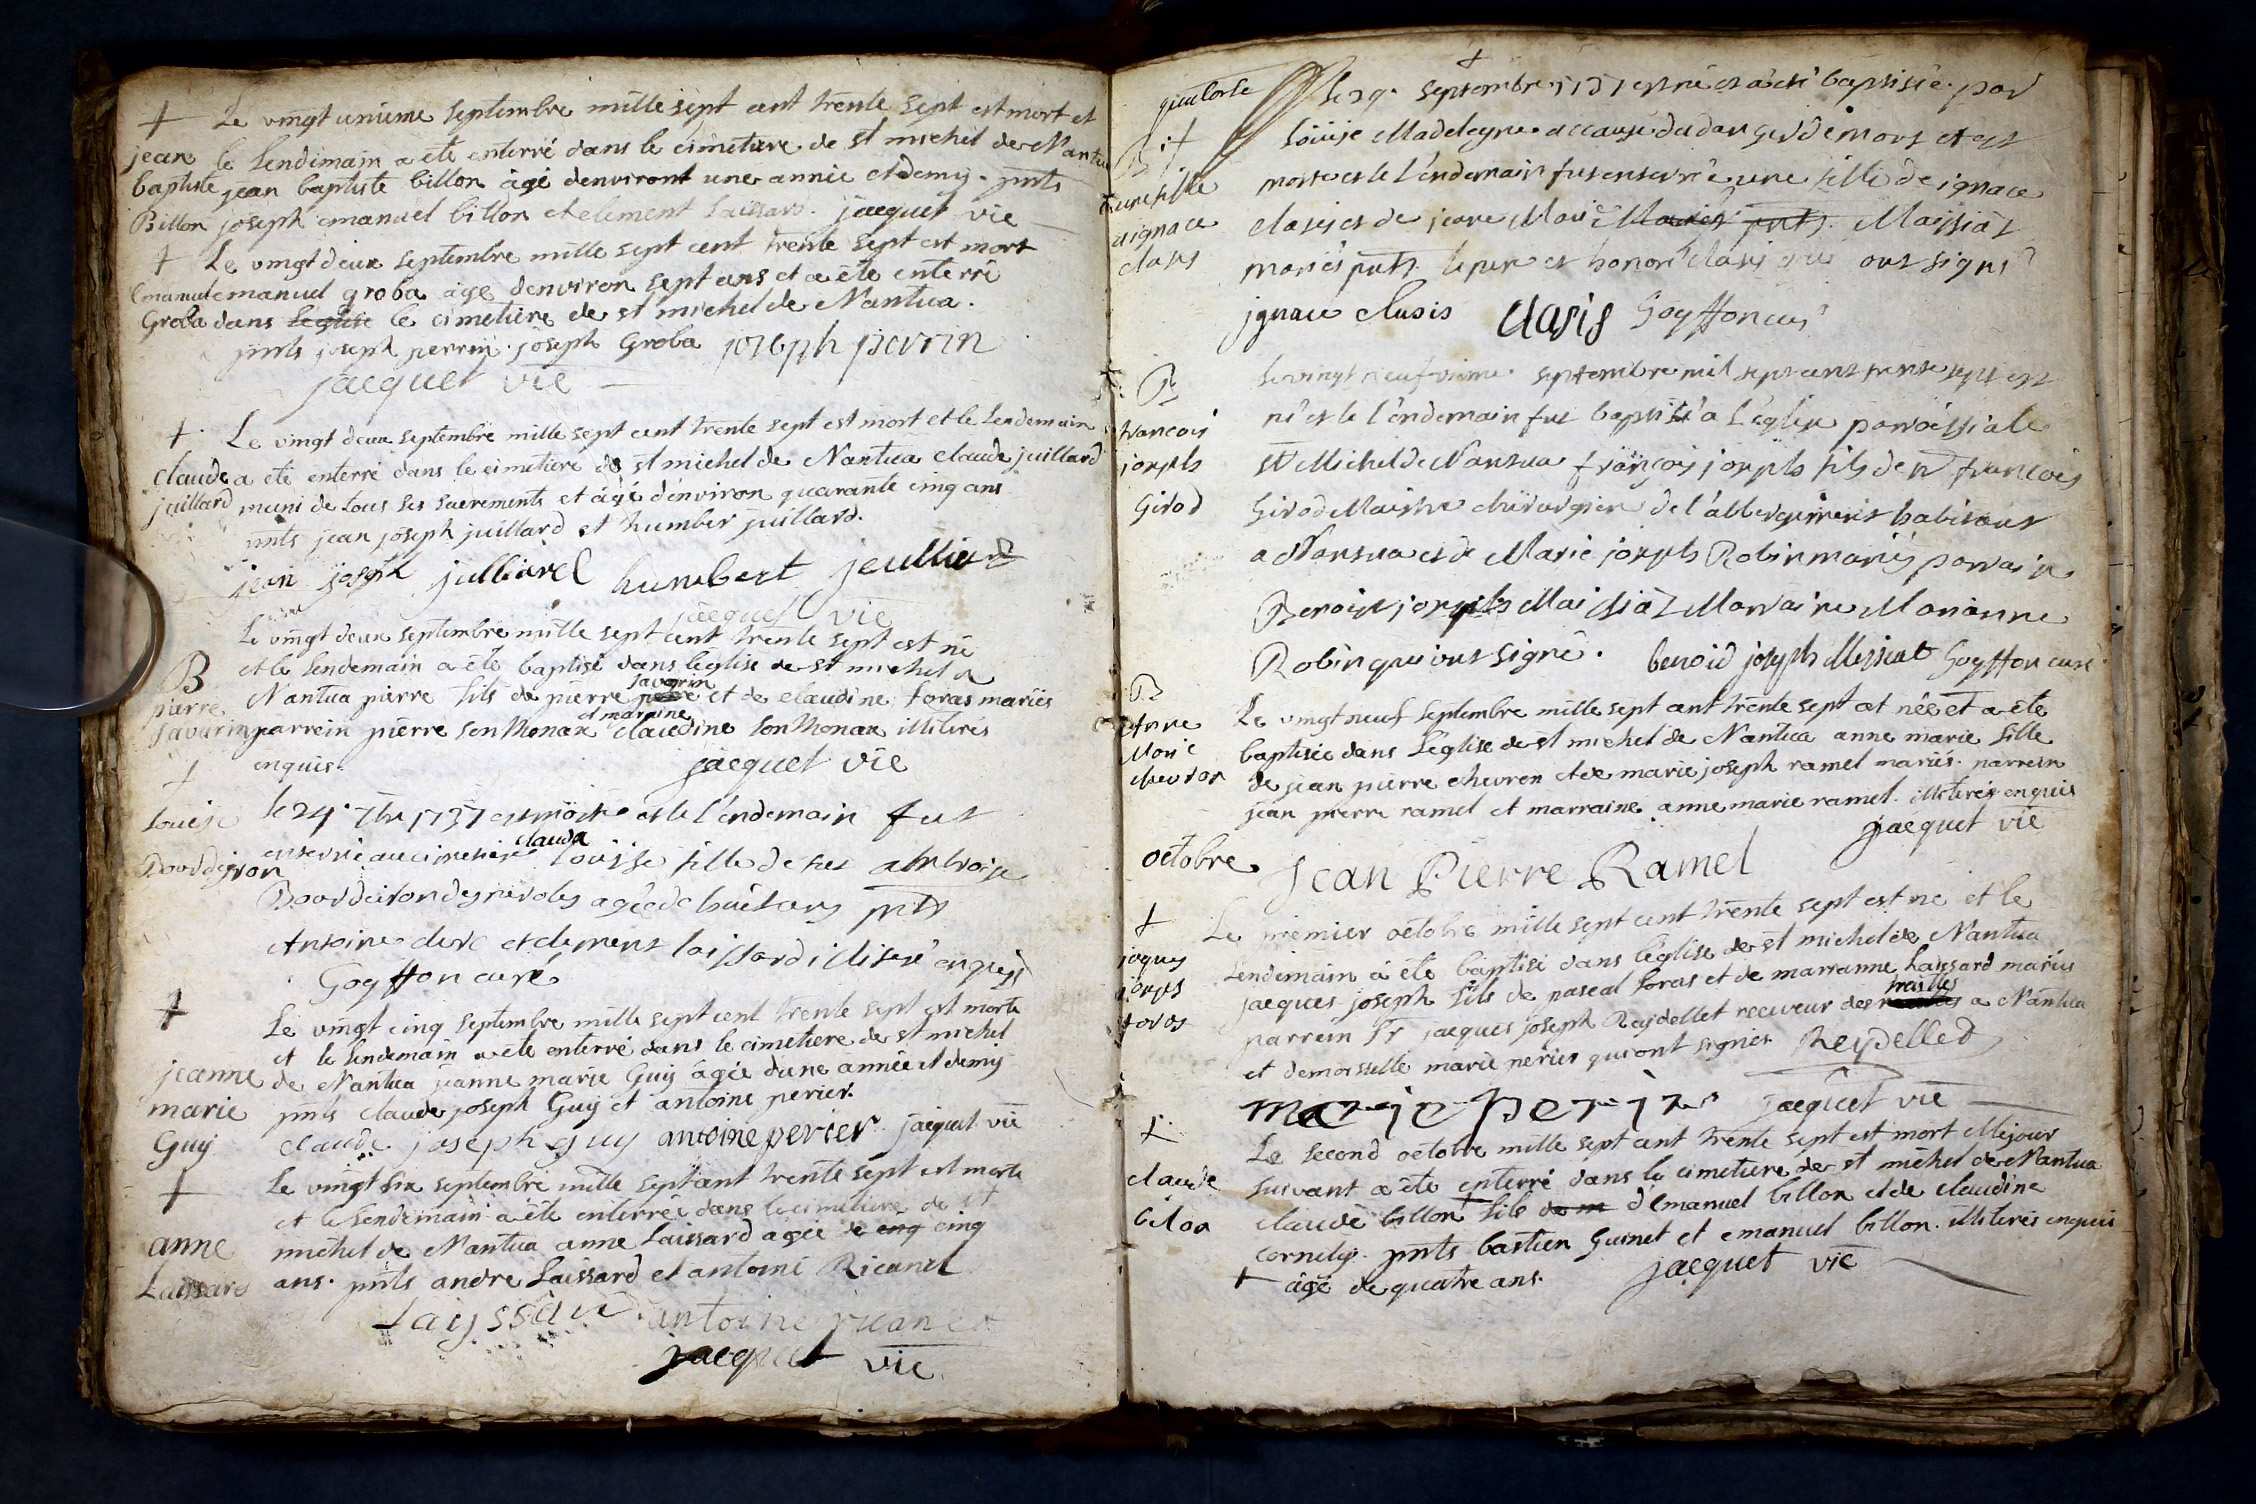 + Le vingt unieme septembre mille sept cent trente sept est mort et
jean le lendemain a ete enterré dans le cimetiere de st michel de Nantua
baptiste jean baptiste billon âgé denviront une année et demy. pnts
Billon joseph emanuel billon et clement laissard. jacquet vic
+ Le vingt deux septembre mille sept cent trente sept est mort
Emanuel emanuel groba age denviron sept ans et a ete enterré
Groba dans leglise le cimetiere de st michel de Nantua.
pnts joseph perrin. joseph Groba joseph parrin
jacquet vic
+. Le vingt deux septembre mille sept cent trente sept est mort et le lendemain
claude a eté enterré dans le cimetiere de st michel de Nantua claude juillard
juillard muni de tous ses sacrements et âgé d'environ quarante cinq ans
pnts jean joseph juillard et humber juillard.
jean joseph julliard humbert jeulliard
jacquet vic
Le vingt deux septembre mille sept cent trente sept est né
et le lendemain a ete baptisé dans leglise de st michel de
B
Nantua pierre fils de pierre petre savarin et de claudine foras mariés
pierre
savarin parrein pierre sonthonax et maraine claudine sonthonax illiterés
enquis.
jacquet vic
+
Louise le 24e 7bre 1737 est morte et le l'endemain fut
enterrée au cimetiere claude Louise fille de feu ambroise
Bourdeyron
Bourdeiron des neyrolles agée de huit ans pnts
Antoine et clement laissard illiteré enquis
Goyffon curé
+
Le vingt cinq septembre mille sept cent trente sept est morte
et le lendemain a ete enterré dans le cimetiere de st michel
jeanne de Nantua jeanne marie Guy âgée dune année et demy
marie pnts claude joseph Guy et antoine perier.
Guy claude joseph guy antoine perier jacquet vic
+ Le vingt six septembre mille sept cent trente sept est morte
et le lendemain a été enterrée dans le cimetiere de st
anne michel de Nantua anne laissard agée de cinq cinq
Laissard ans. pnts andre Laissard et antoine Ricanet
Laissard antoine ricanet
jacquet vic
+
le 29e septembre 1737 est né et a été baptisée par
B +
Louise Madeleyne a cause du danger de mort et est
une fille morte et le l'endemain fut enterrée une fille de ignace
a ignace clasis et de jeane Marie Mariés pnts. Maissiat
clasis mariés pnts. le pere et honoré clasis qui ont signé
ignace clasis clasis Goyffon curé
B
le vingt neufvieme septembre mil sept cent trente sept est
né et le l'endemain fut baptisé a l'église parroissiale
francois
joseph st Michel de Nantua françois joseph fils de sr francois
Girod Girod Maistre chirurgien de l'abbergement habitant
a Nantua et de Marie joseph Robin mariés parrain
Benoist joseph Maissiat Marraine Marianne
Robin qui ont signé. benoid joseph Messiat Goyffon curé
B
Anne Le vingt neuf septembre mille sept cent trente sept est née et a ete
Marie baptisée dans leglise de st michel de Nantua anne marie fille
chevron de jean pierre chevron et de marie joseph ramel mariés. parrein
jean pierre ramel et marraine anne marie ramel. illiterés enquis
jacquet vic
octobre Jean Pierre Ramel
+ Le premier octobre mille sept cent trente sept est né et le
jaques lendemain a ete baptisé dans leglise de st michel de Nantua
joseph jacques joseph fils de pascal foras et de marianne Laissard mariés
foras parrein sr jacques joseph Reydellet receveur des traittes a Nantua
et demoisselle marie perier qui ont signés. Reydellet
marie perier jacquet vic
+
Le second octobre mille sept cent trente sept est mort et le jour
claude suivant a ete enterré dans le cimetiere de st michel de Nantua
bilon claude billon fils de m d'Emanuel billon et de claudine
cornely. pnts bastien Guinet et emanuel billon. illiterés enquis
+ âgé de quatre ans. jacquet vic